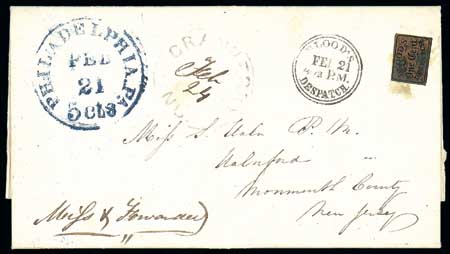 PHILADELPHIA Pa.
FEB
21
5 cts
Feb
24
BLOOD'S
FEB 21
P.M.
DESPATCH
Miss S. Waln P. M.
Walnford "
Monmouth County
New Jersey
Missd & Forwarded
"
One Cent